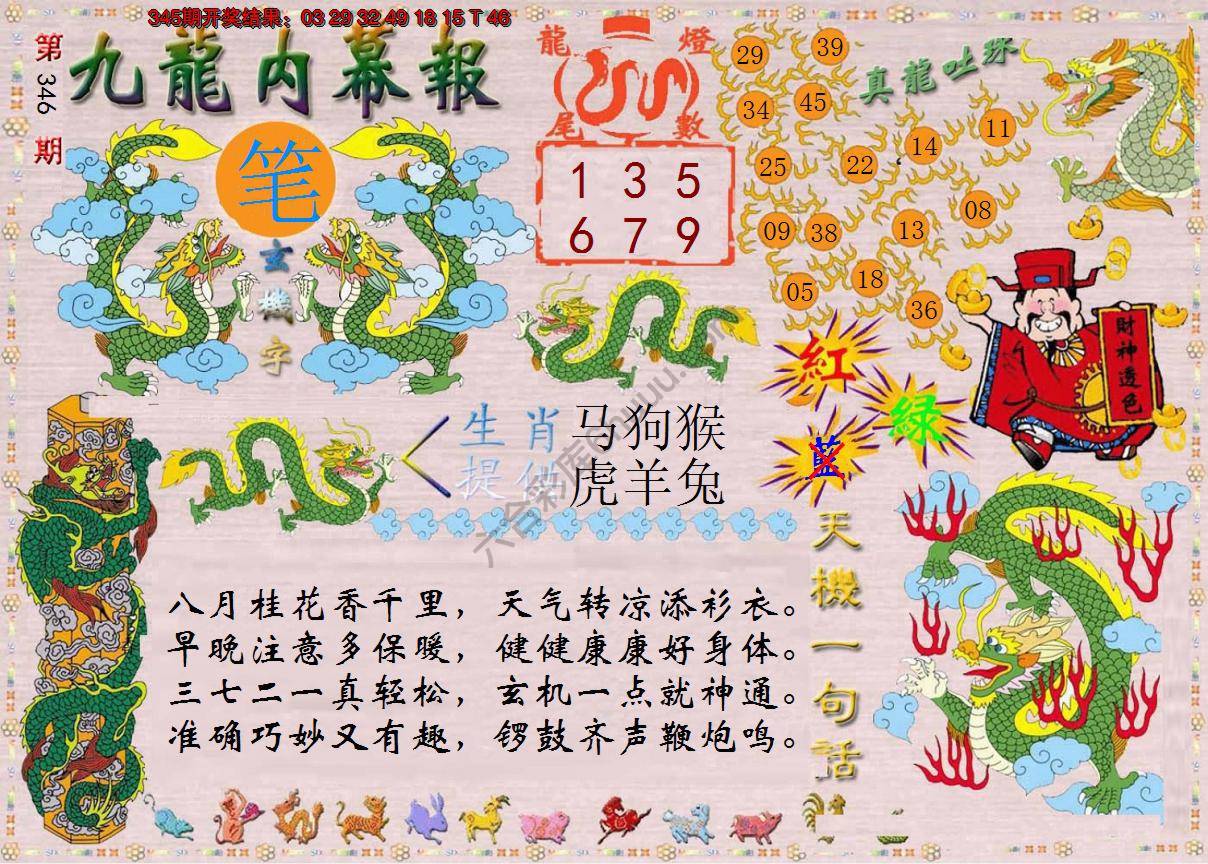 345期开奖结果：03 29 32 49 18 15 T 46
第346期
九龍内幕報
笔
玄機字
龍燈
尾數
1 3 5
6 7 9
真龍吐珠
29 39
34 45
25 22 14 11
09 38 13 08
05 18 36
財神透色
紅
綠
藍
生肖 马狗猴
提供 虎羊兔
天機一句話
八月桂花香千里，天气转凉添衫衣。
早晚注意多保暖，健健康康好身体。
三七二一真轻松，玄机一点就神通。
准确巧妙又有趣，锣鼓齐声鞭炮鸣。